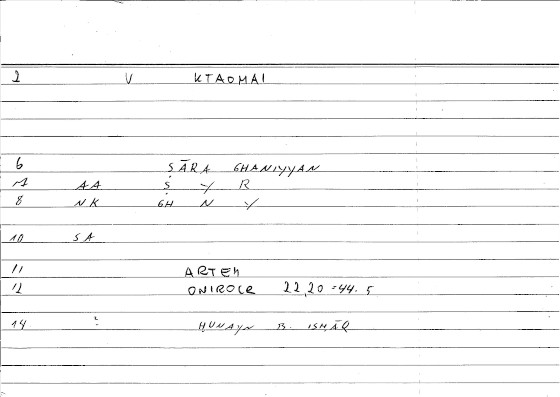 2 V KTAOMAI
6 ṢĀRA GHANIYYAN
AA Ṣ Y R
8 NK GH N Y
10 SA
11 ARTEM
12 ONIROCR 22,20 = 44.5
14 : ḤUNAYN B. ISḤĀQ